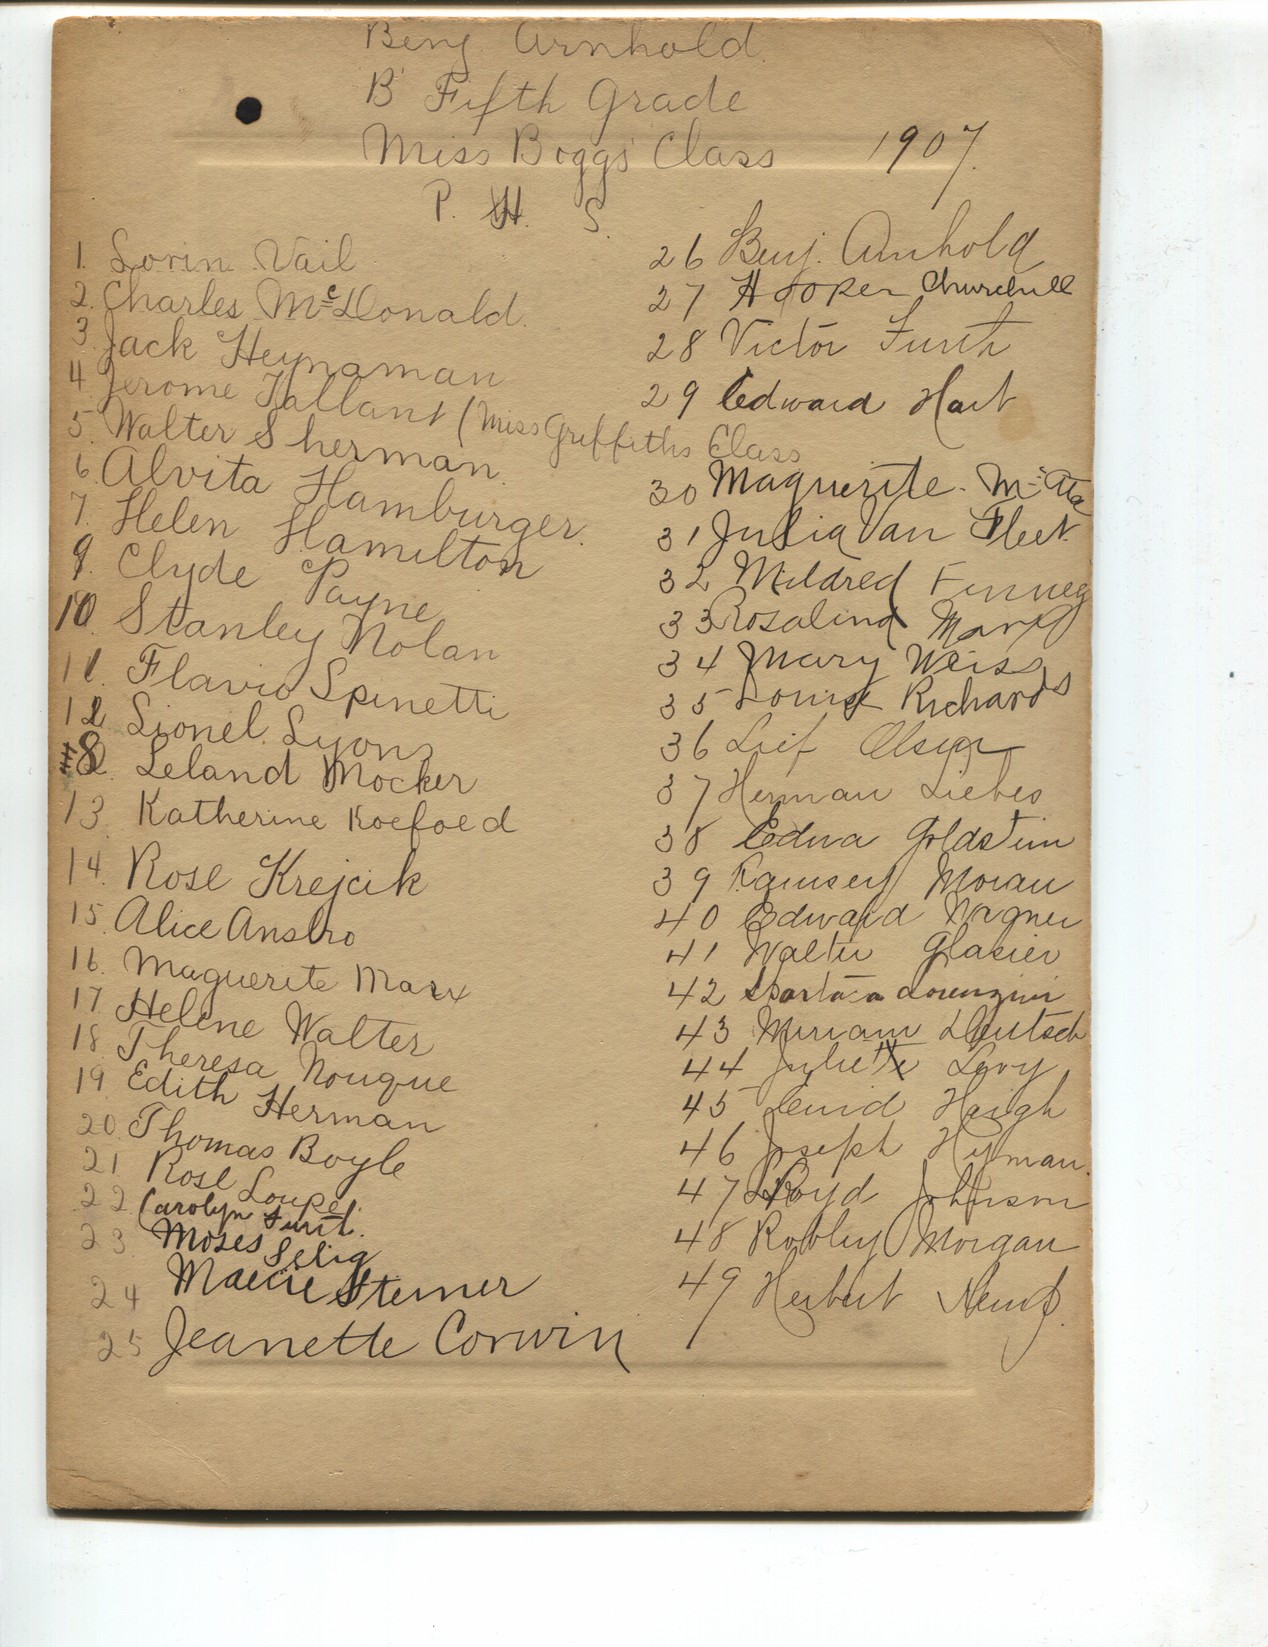 Benj Arnhold
B Fifth Grade
Miss Boggs Class 1907.
P. H. S.
1. Lorin Vail
2. Charles McDonald.
3. Jack Heynaman
4. Jerome Tallant (Miss Griffiths Class
5. Walter Sherman
6. Alvita Hamburger.
7. Helen Hamilton
9. Clyde Payne
10. Stanley Nolan
11. Flavio Spinetti
12 Lionel Lyons
8. Leland Mocker
13. Katherine Koefoed
14. Rose Krejcik
15. Alice Anslro
16. Maguerite Marx
17. Helene Walter
18. Theresa Nougue
19. Edith Herman
20. Thomas Boyle
21 Rose Loupe
22 Carolyn Furth.
23. Moses Selig
24 Maecie Sterner
25 Jeanette Corwin
26 Benj. Arnhold
27 Hooper Churchill
28 Victor Furth
29 Edward Hart
30 Maguerite. Mc
31 Julia Van Fleet.
32 Mildred Finneg
33 Rosalind Marx
34 Mary Weiss
35 Louise Richards
36 Leif Olsen
37 Herman Liebes
38 Edna Goldstein
39 Ramsey Moran
40 Edward Wagner
41 Walter Glasier
42 Spartaca Lorenzini
43 Miriam Deutsch
44 Juliette Levy
45 Enid Haigh
46 Joseph Hyman.
47 Lloyd Johnson
48 Robley Morgan
49 Herbert